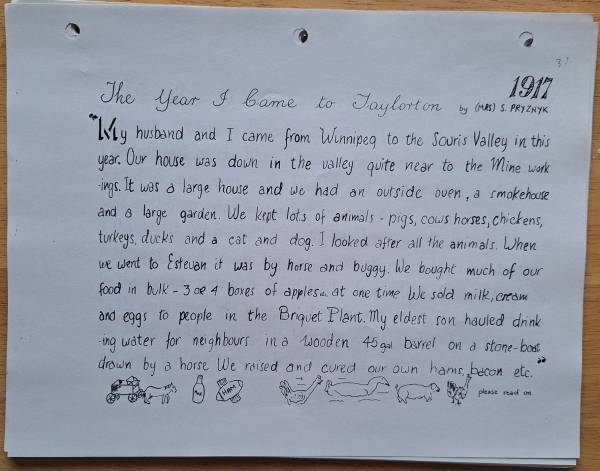 31
1917
The Year I Came to Taylorton by (MRS) S. PRYZNYK
"My husband and I came from Winnipeg to the Souris Valley in this
year. Our house was down in the valley quite near to the Mine work
-ings. It was a large house and we had an outside oven, a smokehouse
and a large garden. We kept lots of animals - pigs, cows horses, chickens,
turkeys, ducks and a cat and dog. I looked after all the animals. When
we went to Estevan it was by horse and buggy. We bought much of our
food in bulk - 3 or 4 boxes of apples at one time We sold milk, cream
and eggs to people in the Briquet Plant. My eldest son hauled drink
-ing water for neighbours in a wooden 45 gal barrel on a stone-boat
drawn by a horse We raised and cured our own hams, bacon etc."
please read on